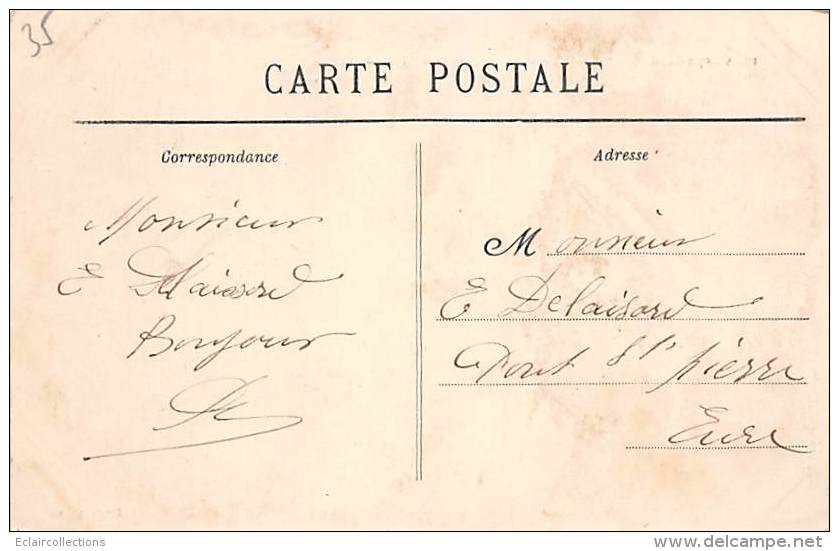 35
CARTE POSTALE
Correspondance
Monsieur
E Delaisord
Bonjour
Adresse
Monsieur
E Delaisord
Pont St pierre
Eure
Eclaircollections
www.delcampe.net